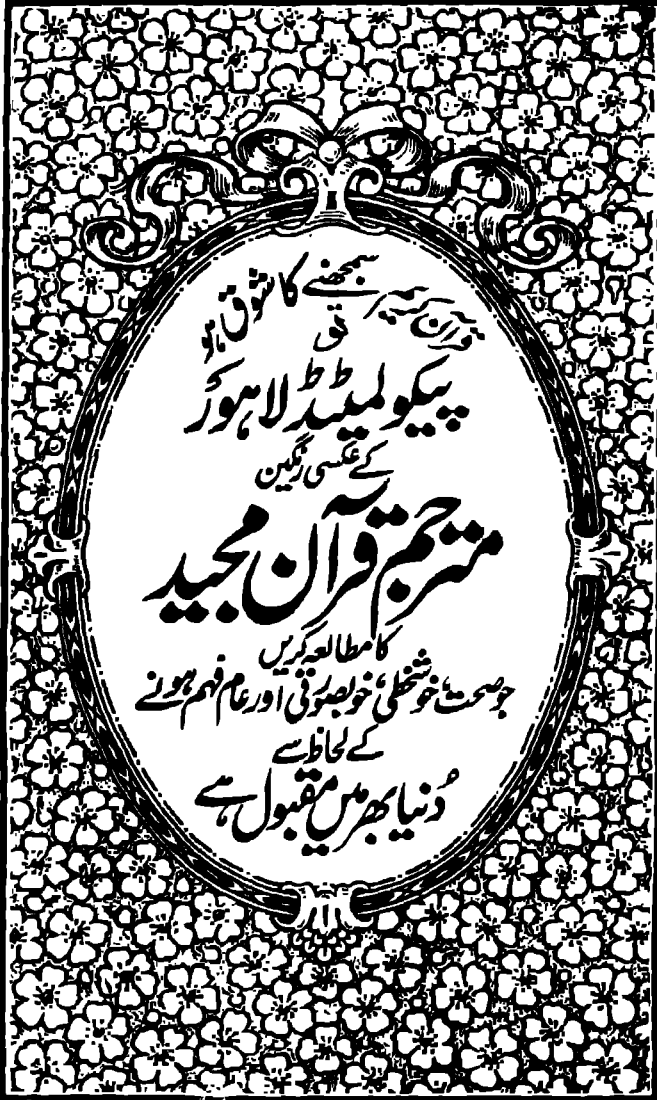 قرآن کریم سمجھنے کا شوق ہو
تو
پیکو لمیٹڈ لاہور
کے عکسی رنگین
مترجم قرآن مجید
کا مطالعہ کریں
جو صحت، خوشخطی، خوبصورتی اور عام فہم ہونے
کے لحاظ سے
دُنیا بھر میں مقبول ہے